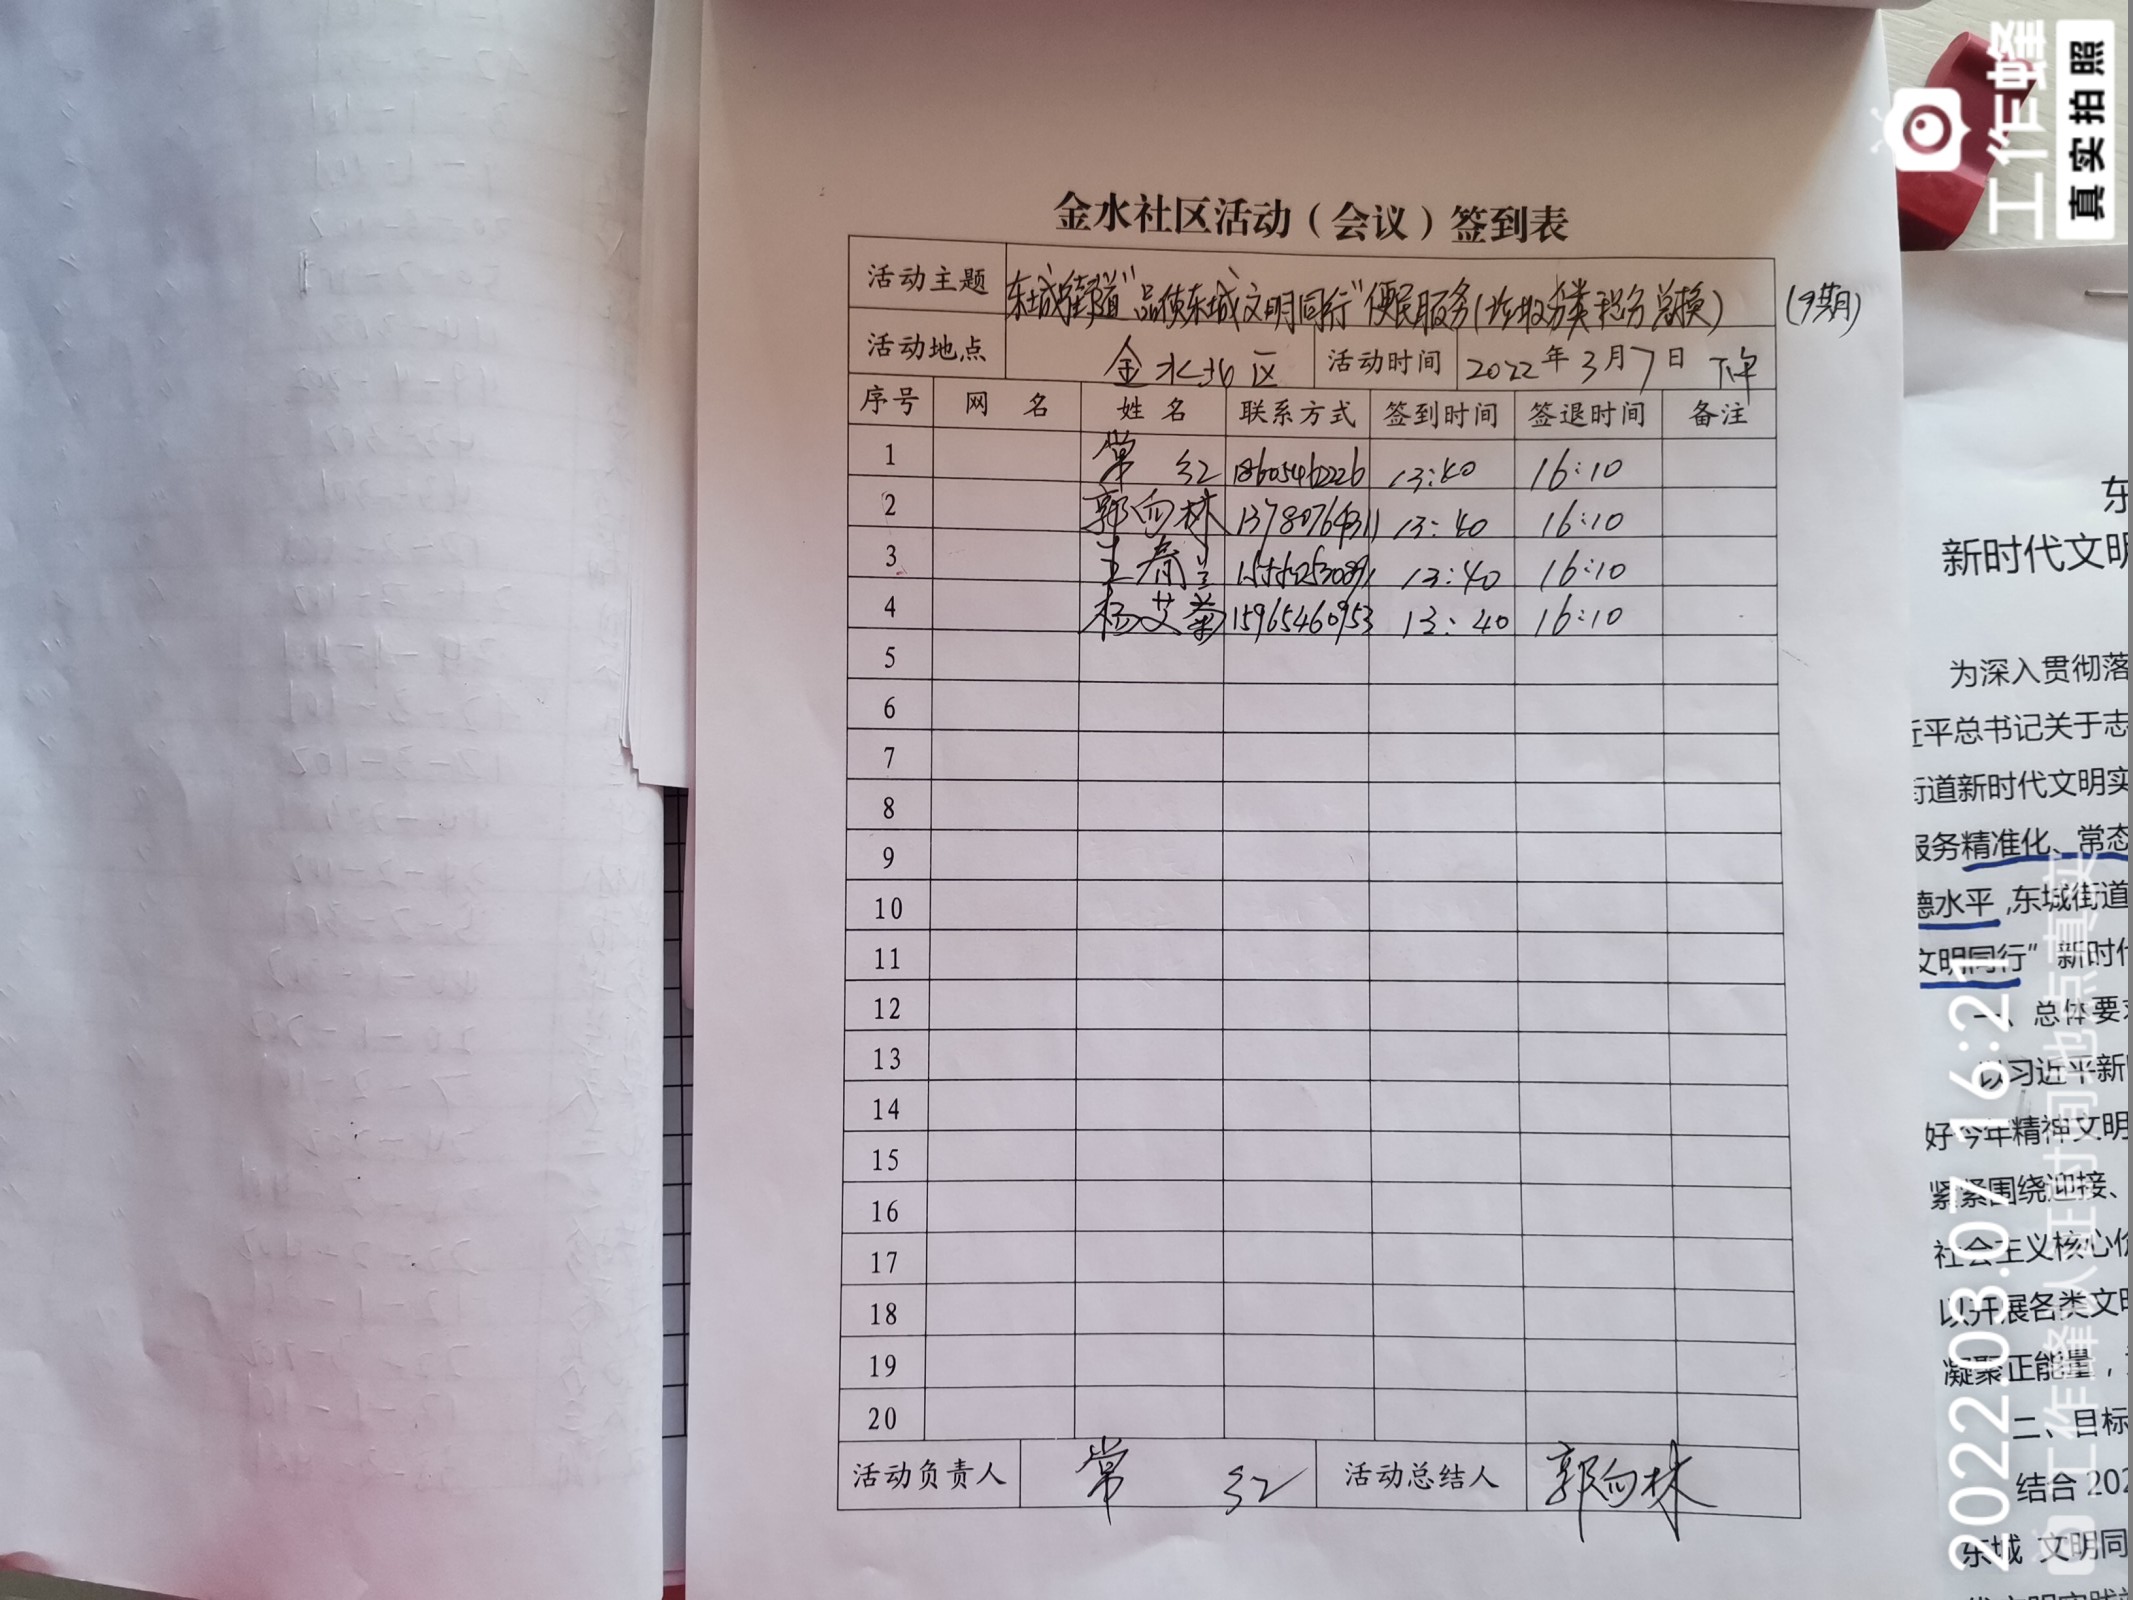 金水社区活动（会议）签到表
活动主题 东城街道"品质东城 文明同行"便民服务(垃圾分类 积分兑换) (9期)
活动地点 金水北区 活动时间 2022年3月7日 下午
序号 网 名 姓 名 联系方式 签到时间 签退时间 备注
1 常 红 18605462226 13:40 16:10
2 郭向林 13780764311 13:40 16:10
3 王春兰 13:40 16:10
4 杨艾菊 15965460953 13:40 16:10
5
6
7
8
9
10
11
12
13
14
15
16
17
18
19
20
活动负责人 常 红 活动总结人 郭向林
东
新时代文明
为深入贯彻落
近平总书记关于志
街道新时代文明实
服务精准化、常态
德水平,东城街道
文明同行”新时代
一、总体要求
以习近平新
好今年精神文明
紧紧围绕迎接、
社会主义核心价
以开展各类文明
凝聚正能量，
二、目标
结合 202
东城 文明同
工作蜂
真实拍照
2022.03.07 16:21
工作蜂认证时间地点真实